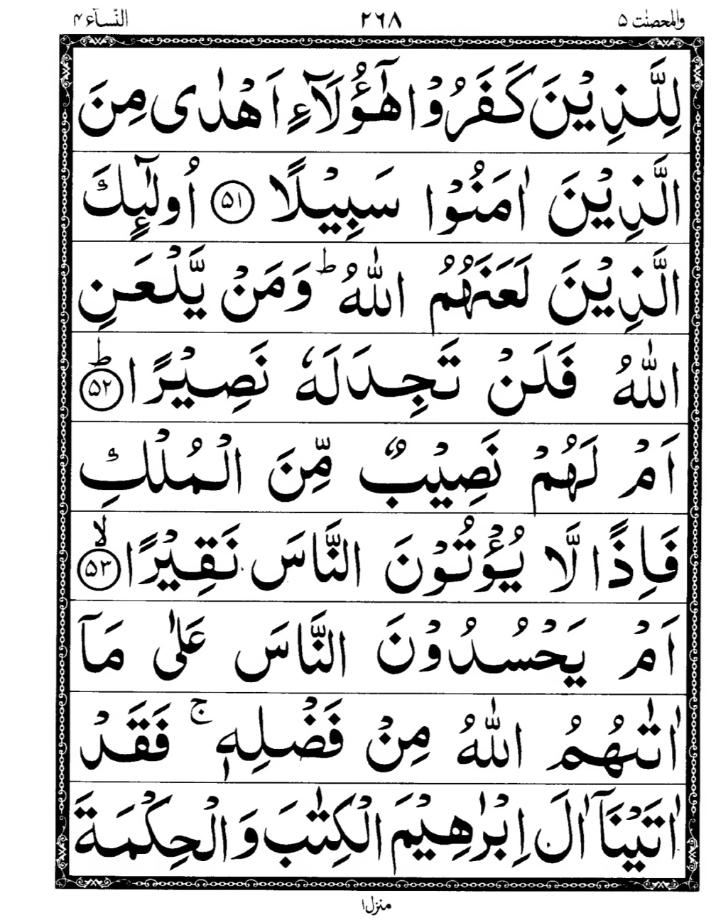 والمحصنٰت ۵ ۲۶۸ النّسآء ۴
لِلَّذِيْنَ كَفَرُوْا هٰٓؤُلَآءِ اَهْدٰى مِنَ
الَّذِيْنَ اٰمَنُوْا سَبِيْلًا ۵۱ اُولٰٓئِكَ
الَّذِيْنَ لَعَنَهُمُ اللّٰهُ ؕ وَمَنْ يَّلْعَنِ
اللّٰهُ فَلَنْ تَجِدَ لَهٗ نَصِيْرًا ؕ ۵۲
اَمْ لَهُمْ نَصِيْبٌ مِّنَ الْمُلْكِ
فَاِذًا لَّا يُؤْتُوْنَ النَّاسَ نَقِيْرًا ۙ ۵۳
اَمْ يَحْسُدُوْنَ النَّاسَ عَلٰى مَآ
اٰتٰىهُمُ اللّٰهُ مِنْ فَضْلِهٖ ۚ فَقَدْ
اٰتَيْنَآ اٰلَ اِبْرٰهِيْمَ الْكِتٰبَ وَالْحِكْمَةَ
منزل۱